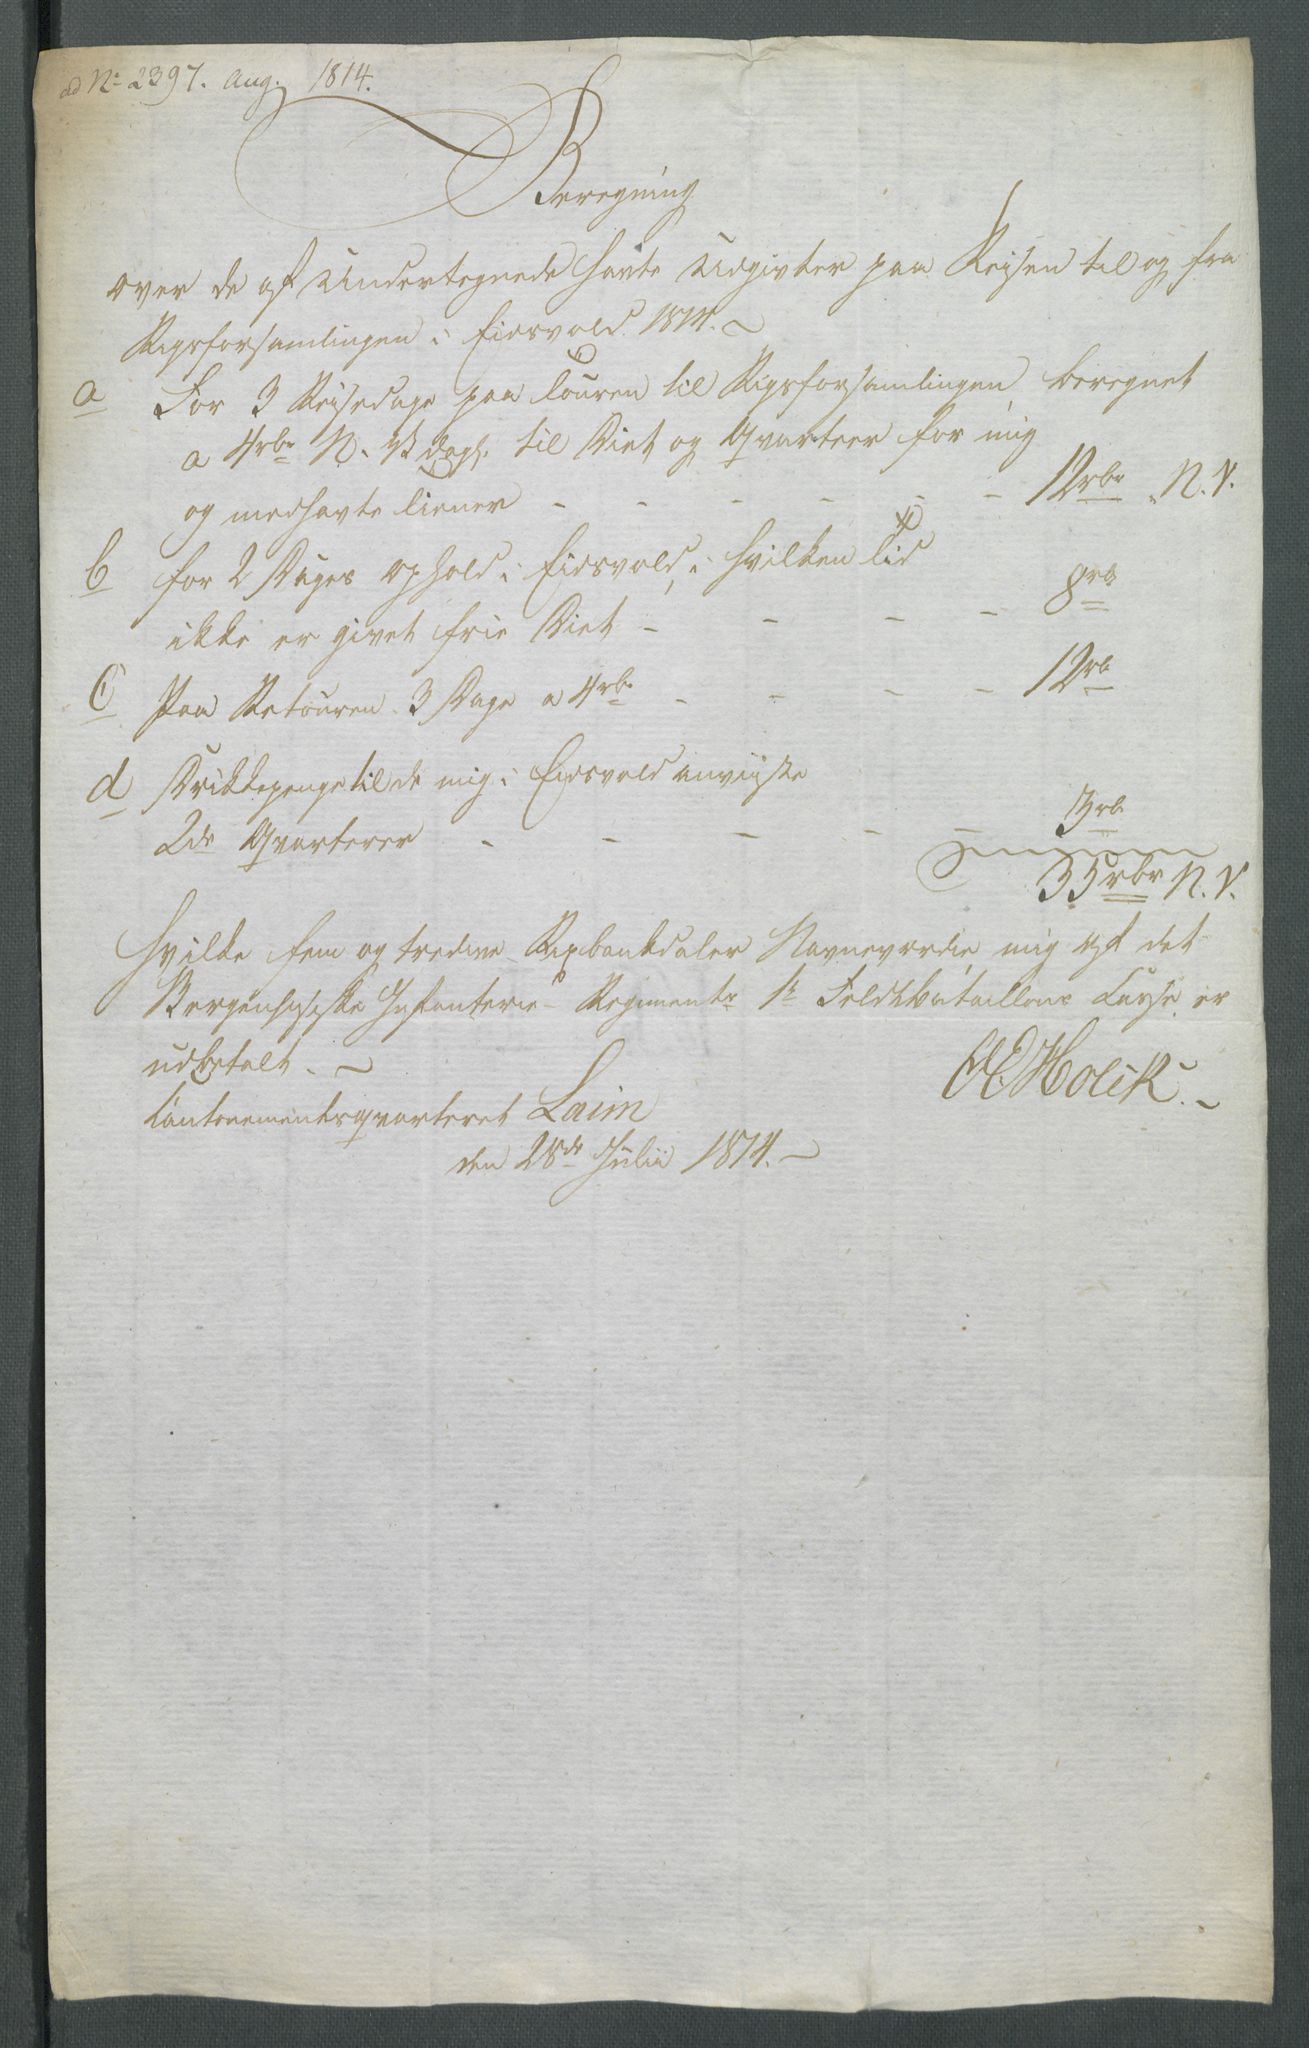 ad No 2397. Aug. 1814.
Beregning
over de af Undertegnede havte Udgivter paa Reisen til og fra
Rigsforsamlingen i Eidsvold 1814.
a For 3 Reisedage paa Touren til Rigsforsamlingen beregnet
a 4rbr N. V. dagl. til Diet og Qvarteer for mig
og medhavte Tiener - - - - - - 12rbr N. V.
b for 2 Dages Ophold i Eidsvold, i hvilken Tid
ikke er givet frie Diet - - - - 8rb
C Paa Retouren 3 Dage a 4rb - - - - 12rb
d Drikkepenge til de mig i Eidsvold anviiste
2de Qvarterer - - - - - 3rb
35rbr N. V.
Hvilke fem og tredive Rixbankdaler Navneværdie mig af det
Bergenhusiske Infanterie-Regiments 1te Feldtbataillons Casse er
udbetalt. -
Cantonementsqvarteret Leim
Holck.
den 28de Julii 1814. -